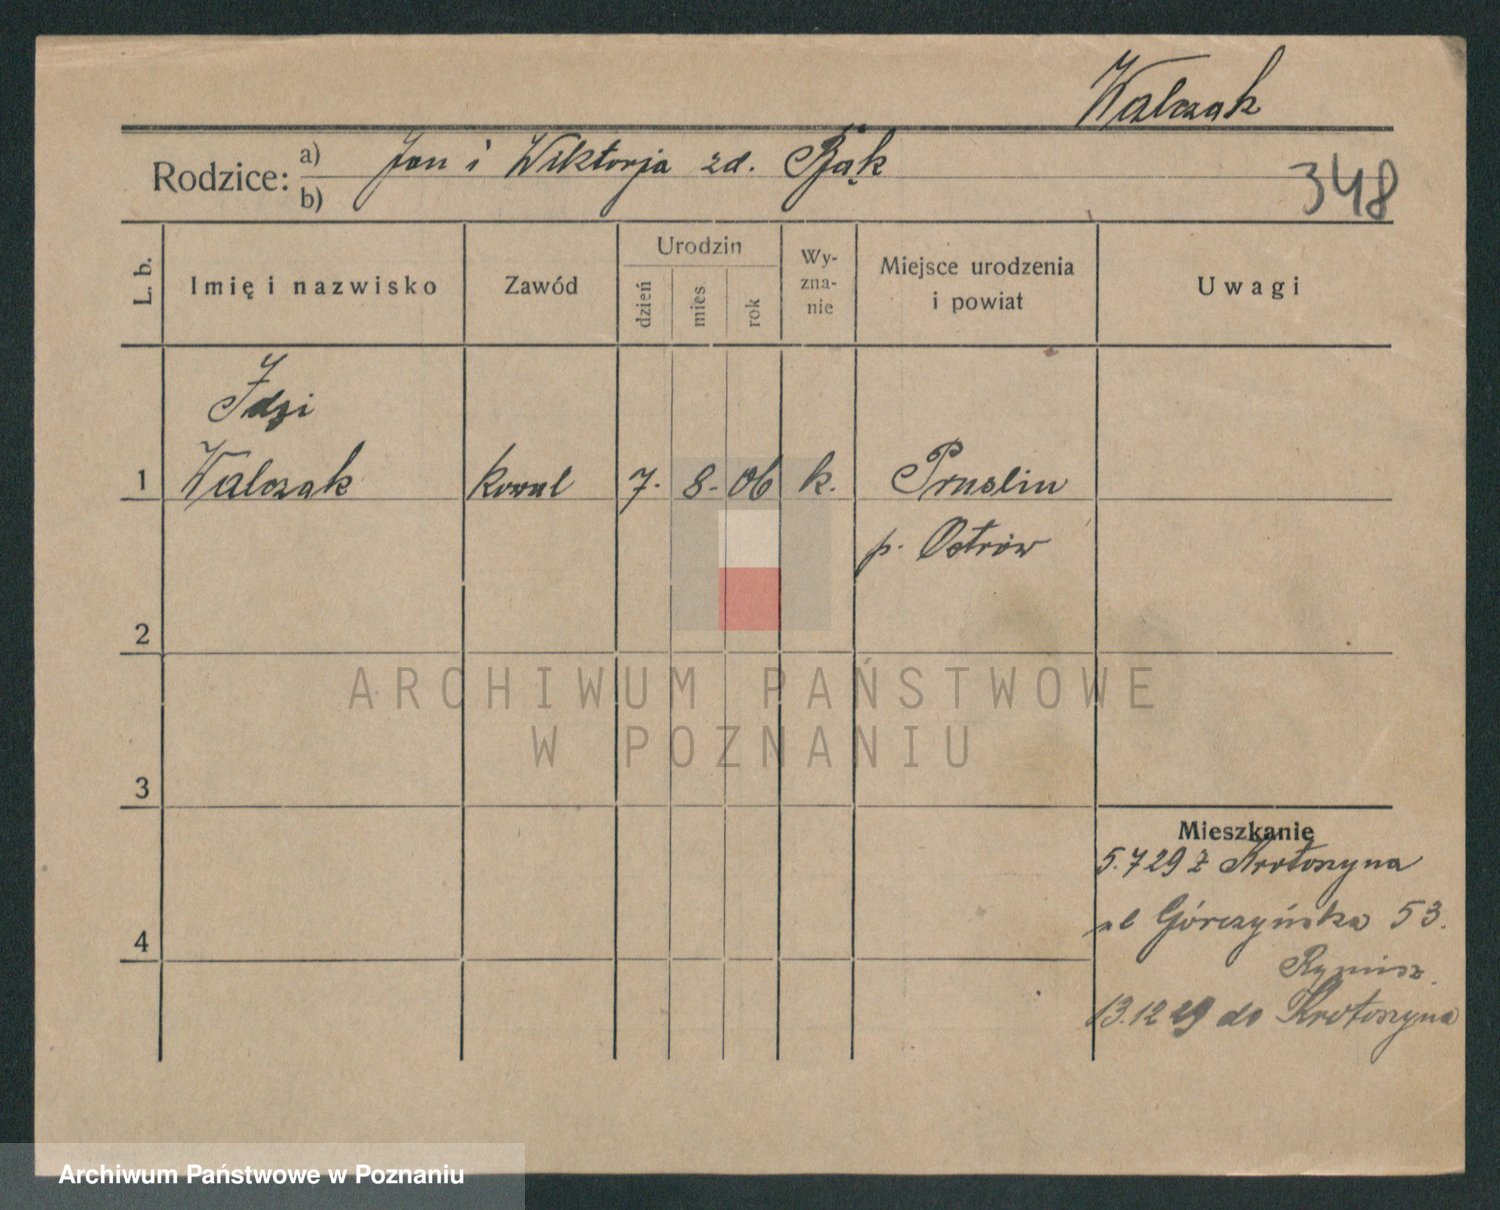 Walczak
Rodzice: a) Jan i Wiktorja zd. Bąk
b)
348
L. b. Imię i nazwisko Zawód Urodzin dzień mies rok Wy-zna-nie Miejsce urodzenia i powiat Uwagi
Idzi
1 Walczak kowal 7. 8. 06 k. Pruslin
p. Ostrów
2
ARCHIWUM PAŃSTWOWE
W POZNANIU
3
Mieszkanie
5.7 29 z Krotoszyna
ul Górczyńska 53.
4
13.12 29 do Krotoszyna
Archiwum Państwowe w Poznaniu